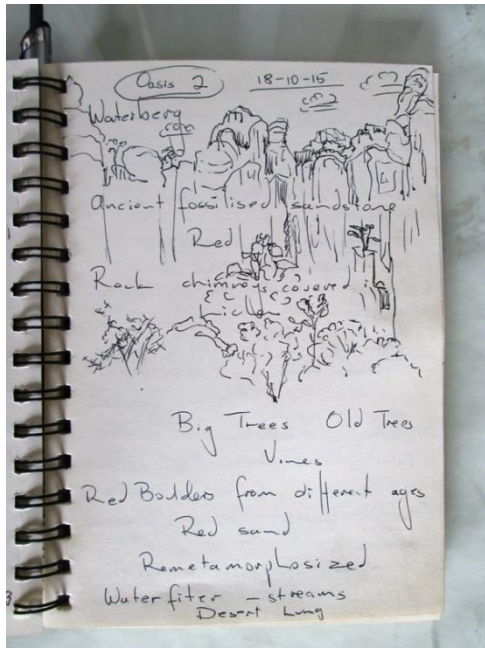 Oasis 2 18-10-15
Waterberg
Ancient fossilised sandstone
Red
Rock chimneys covered in
lichen
Big Trees Old Trees
Vines
Red Boulders from different ages
Red sand
Remetamorphosized
Waterfiter - streams
Desert Lung